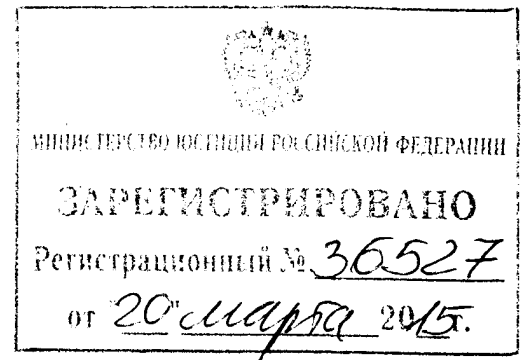 МИНИСТЕРСТВО ЮСТИЦИИ РОССИЙСКОЙ ФЕДЕРАЦИИ
ЗАРЕГИСТРИРОВАНО
Регистрационный № 36527
от "20" марта 2015г.